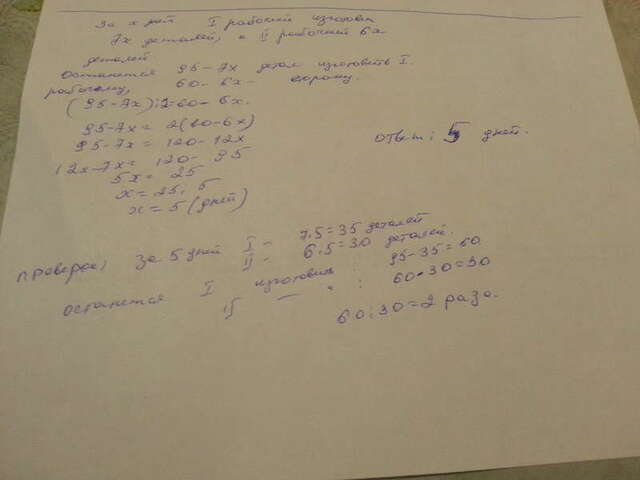 За x дней I рабочий изготовил
7x деталей, а II рабочий 6x
деталей
Останется 95-7x детал изготовить I.
рабочему, 60-6x- второму.
(95-7x):2=60-6x.
95-7x=2(60-6x)
95-7x=120-12x
12x-7x=120-95
5x=25
x=25:5
x=5(дней)
Ответ: 5 дней.
проверка: за 5 дней I - 7.5=35 деталей
II - 6.5=30 деталей.
останется I изготовить : 95-35=60
II — " : 60-30=30
60:30=2 раза.